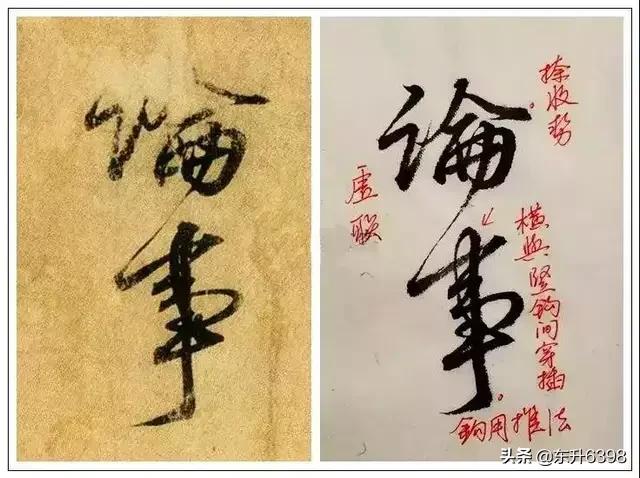 論事
論事
捺收势
虚联
横與竖钩间穿插
钩用推法
头条 @东升6398